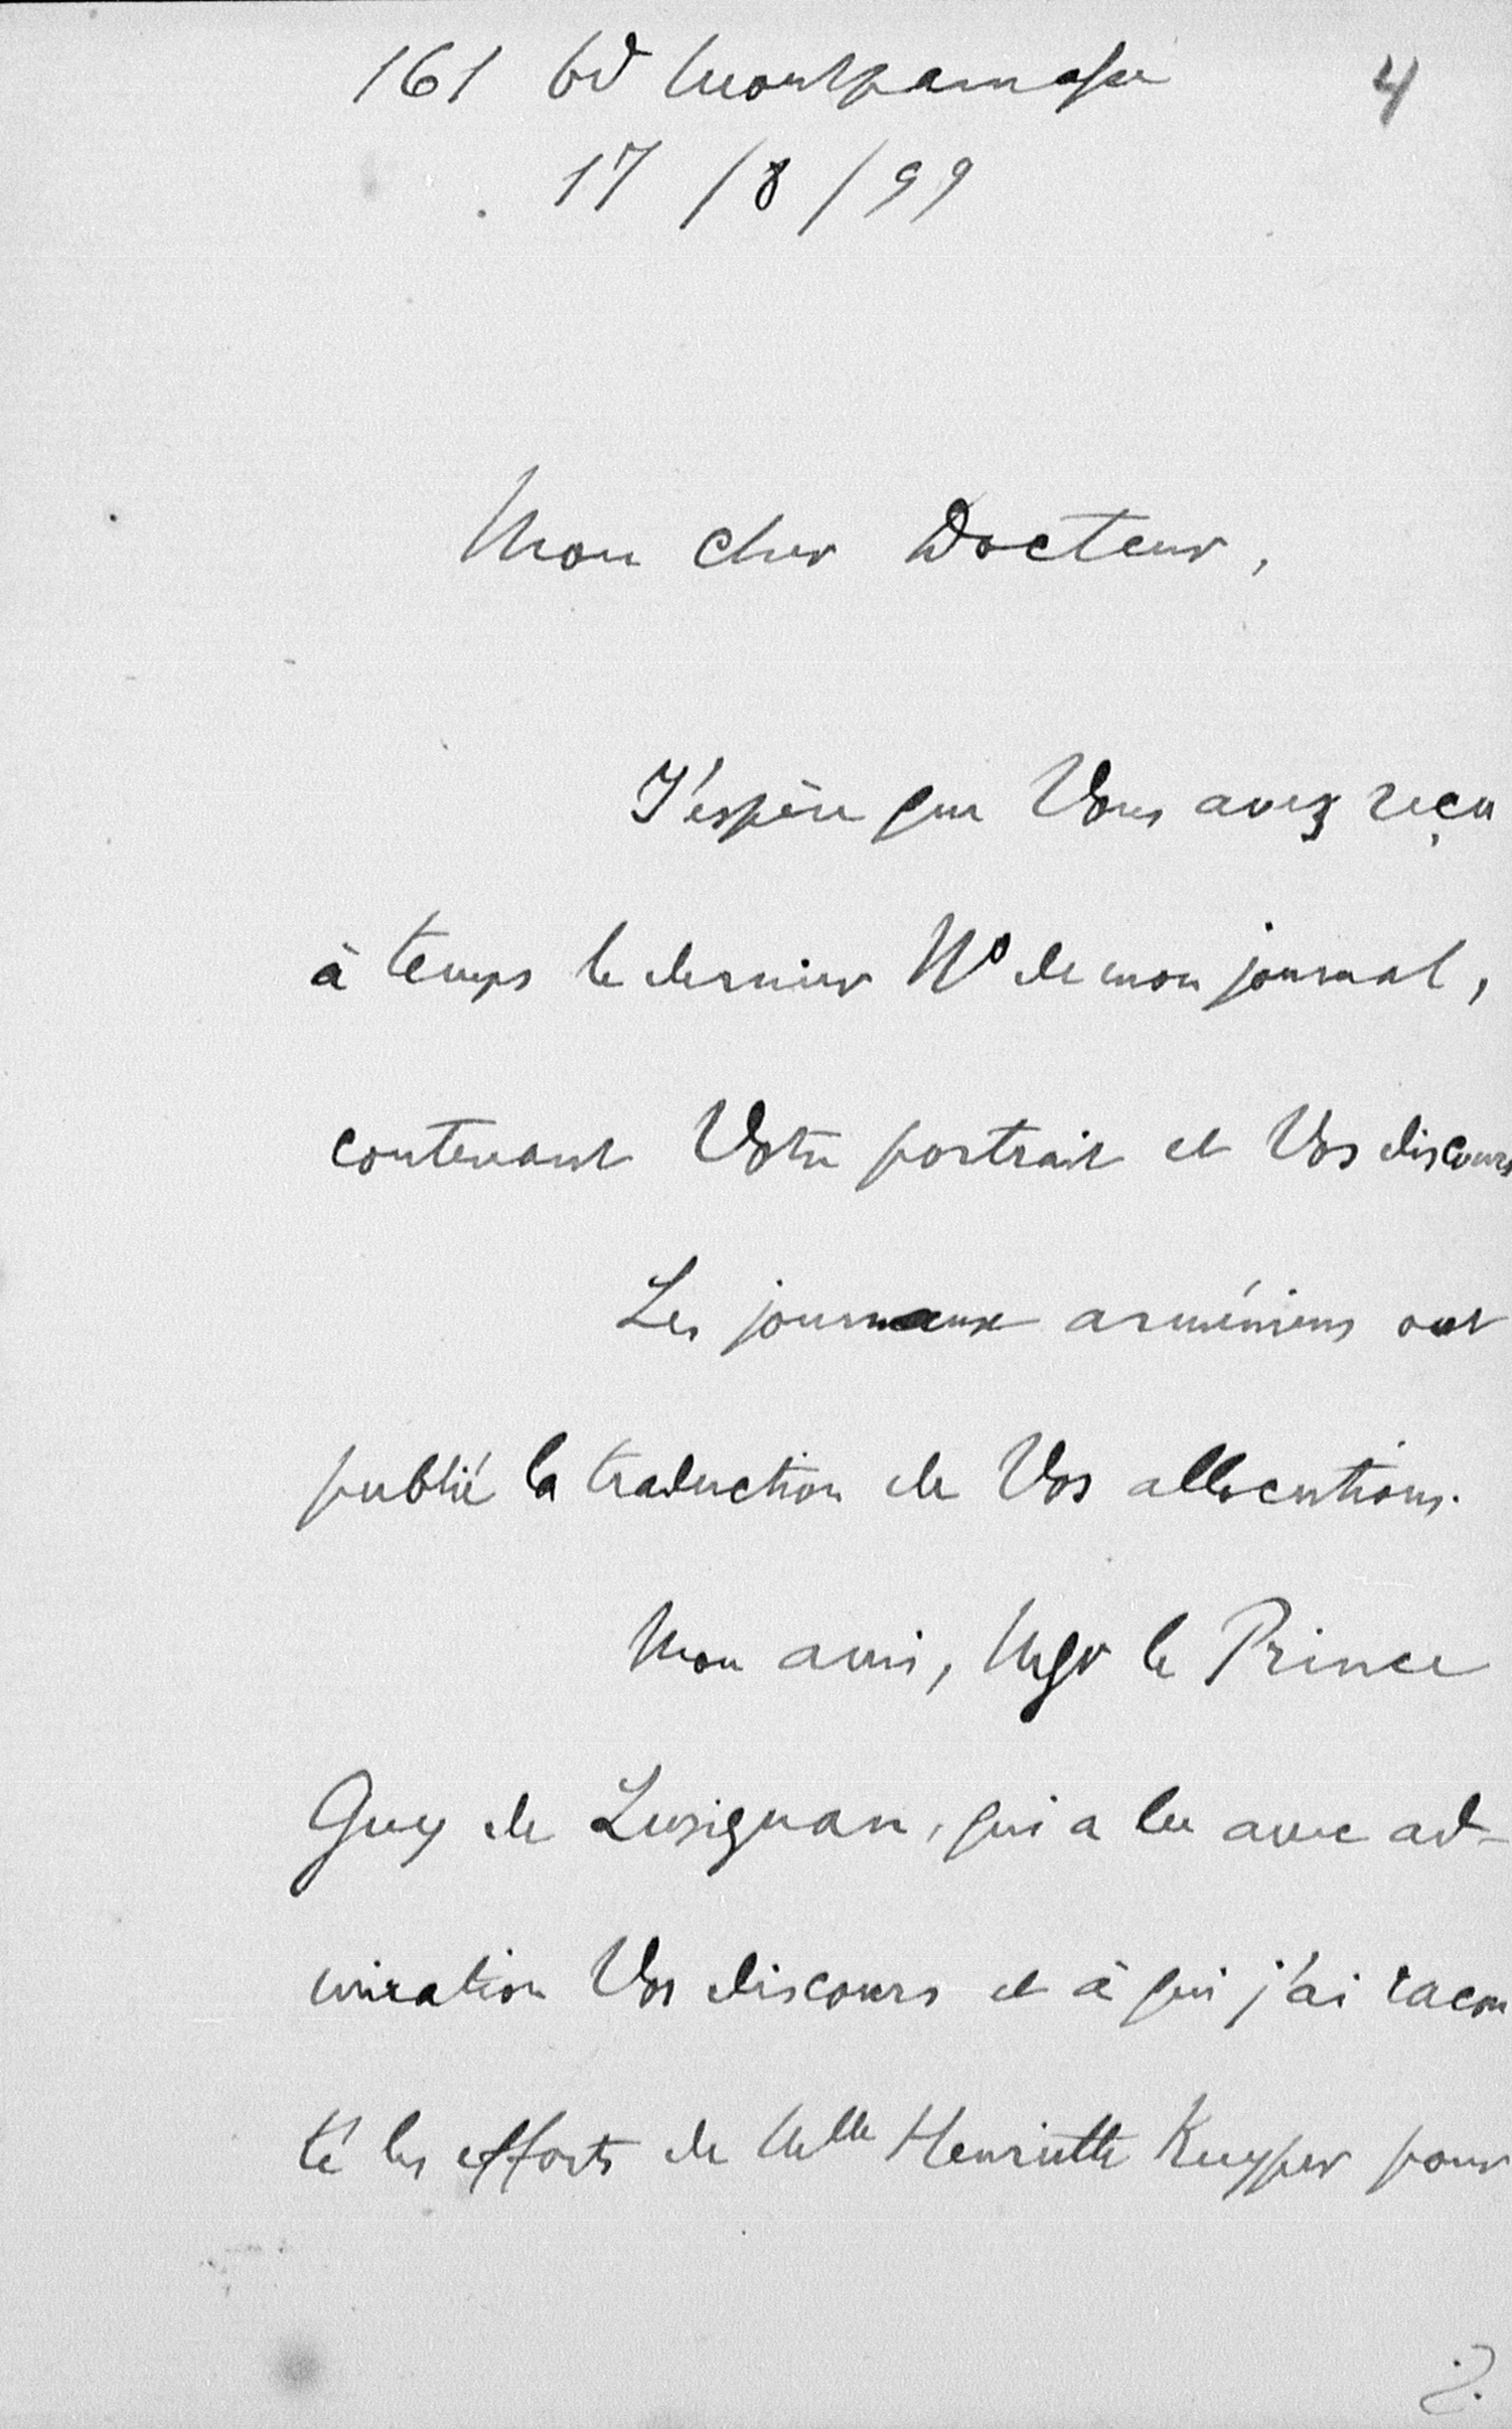 161 bd Montparnasse 4
17/8/99
Mon cher Docteur,
J'espère que Vous avez reçu
à temps le dernier No de mon journal,
contenant Votre portrait et Vos discours
Les journaux arméniens ont
publié la traduction de Vos allocutions.
Mon ami, Mgr le Prince
Guy de Lusignan, qui a lu avec ad-
miration Vos discours et à qui j'ai racon
té les efforts de Melle Henriette Kuyper pour